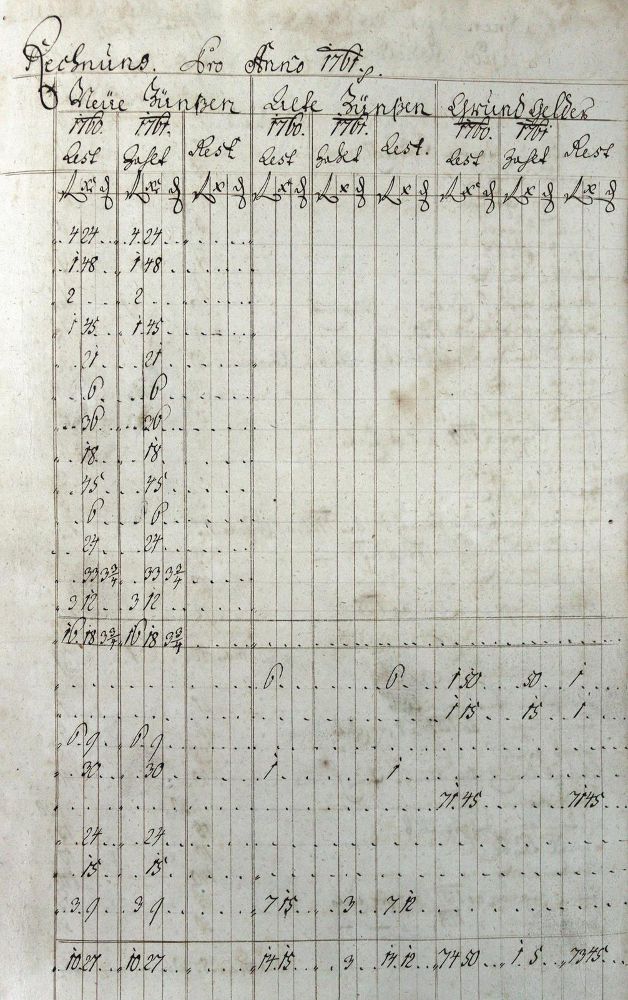 Rechnung. Pro Anno 1761.
Neüe Zünßen Alte Zünßen Grund Gelder
1760. 1761. 1760. 1761. 1760. 1761
Rest Zahlt Rest Rest Zahlt Rest. Rest Zahlt Rest
f x d f x d f x d f x d f x d f x d f x d f x d f x d
4 24 4 24
1 48 1 48
2 2
1 45 1 45
21 21
6 6
36 36
18 18
45 45
6 6
24 24
33 3 3/4 33 3 3/4
3 12 3 12
16 18 3 3/4 16 18 3 3/4
6 6 1 50 50 1
1 15 15 1
6 9 6 9
30 30 1 1
71 45 71 45
24 24
15 15
3 9 3 9 7 15 3 7 12
10 27 10 27 14 15 3 14 12 74 50 1 5 73 45